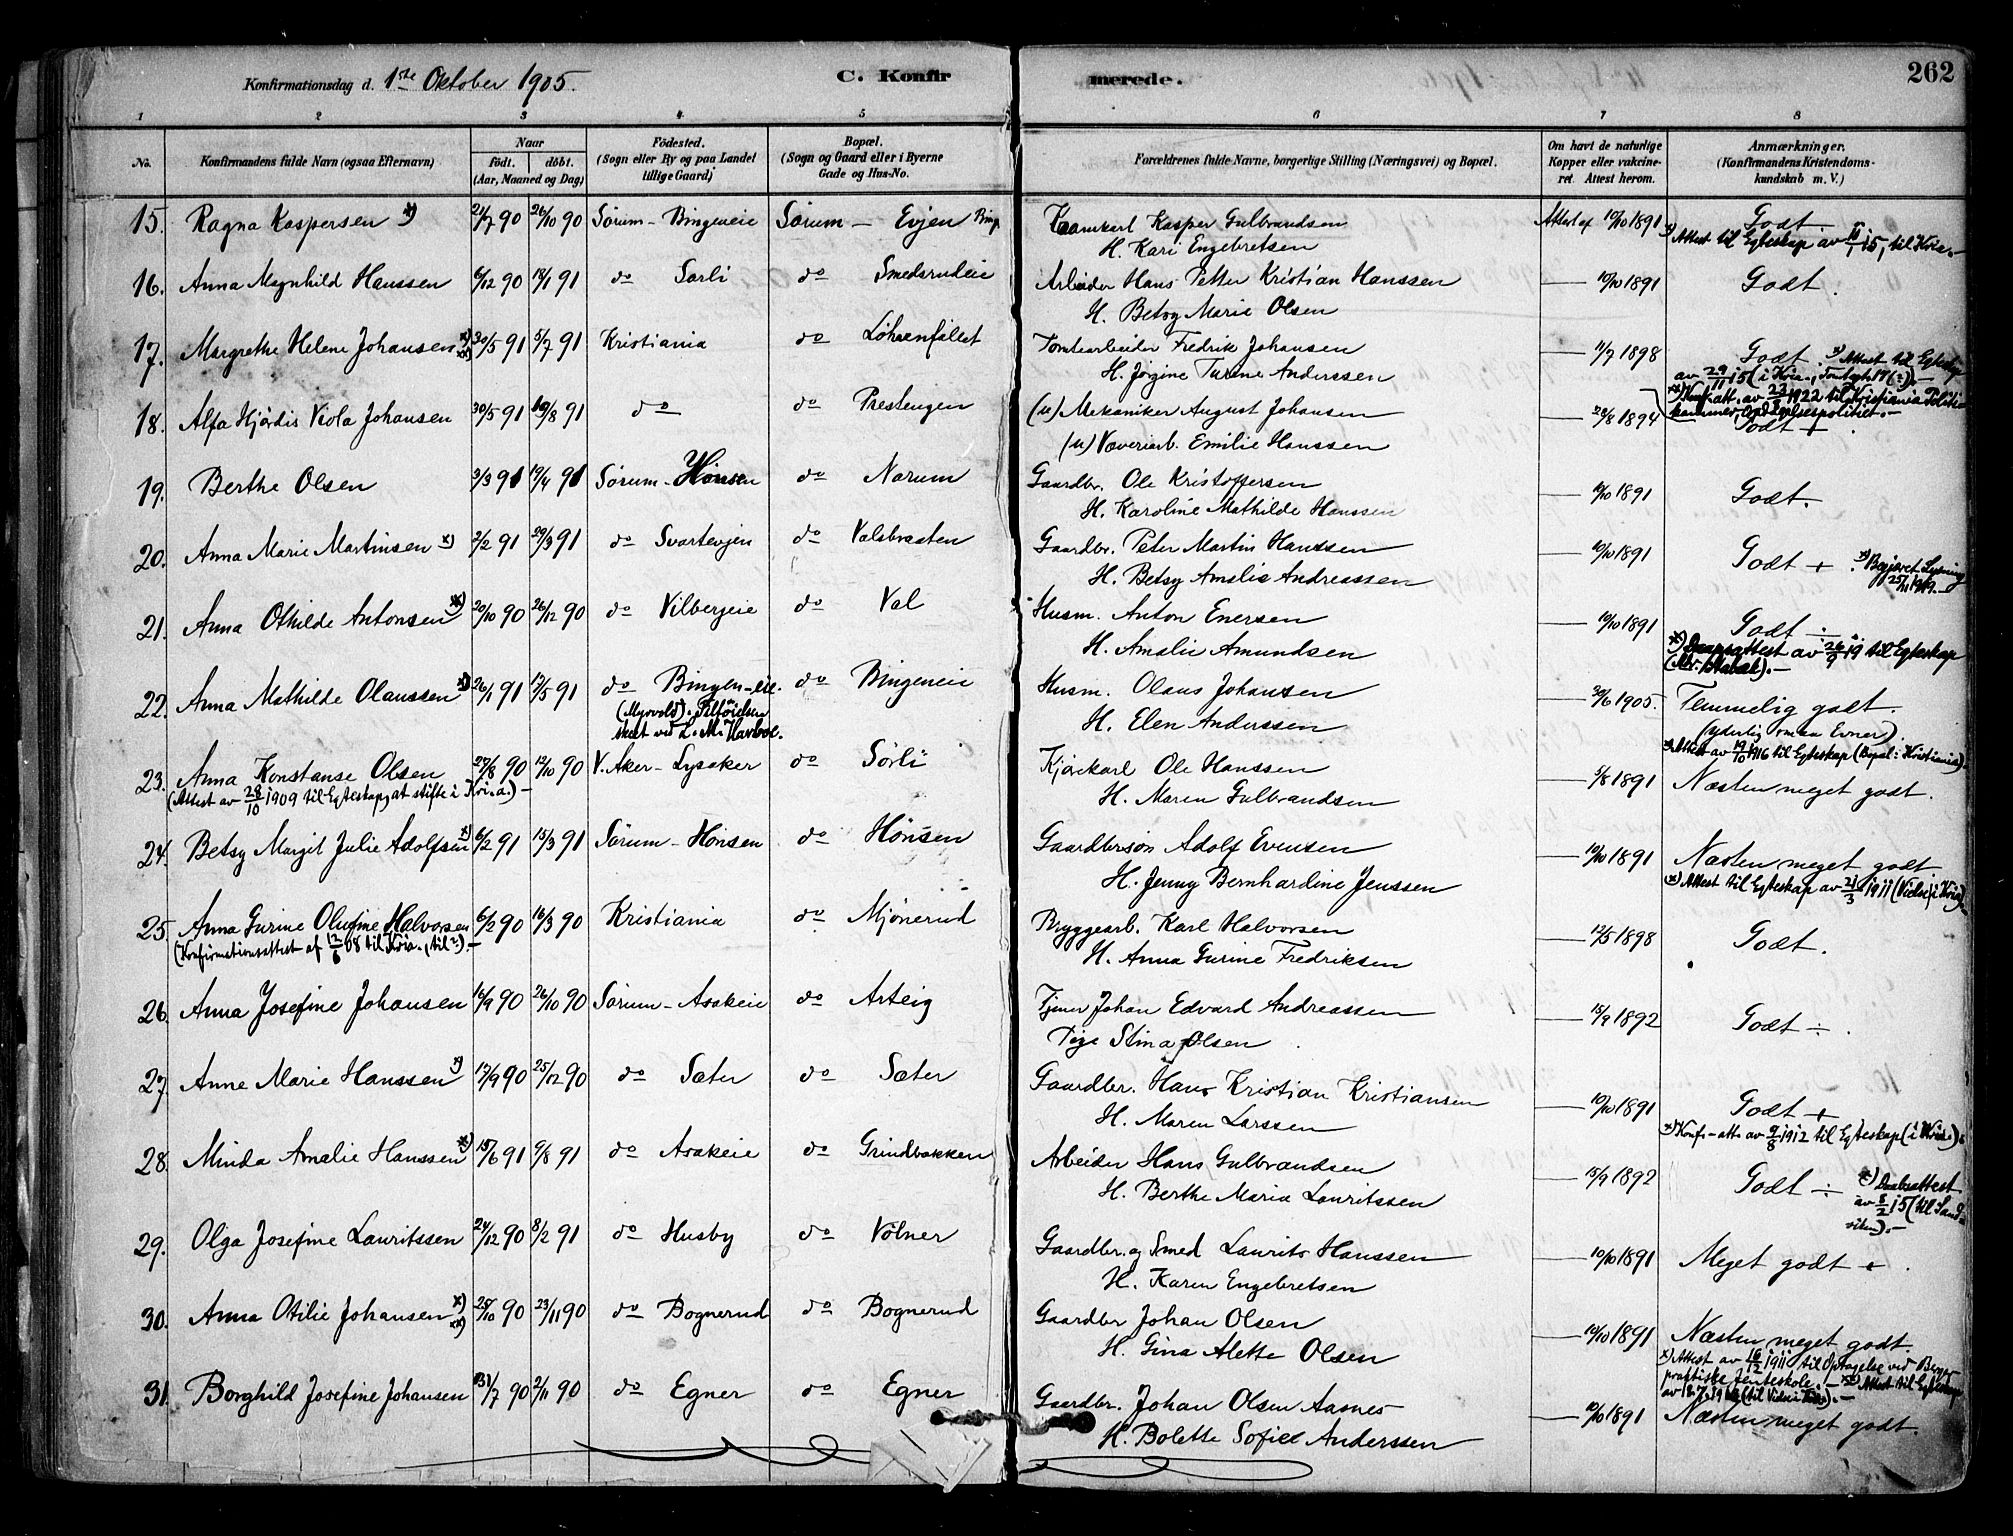 Konfirmationsdag d. 1ste Oktober 1905.
C. Konfir
merede.
262
1 2 3 4 5 6 7 8
No.
Konfirmandens fulde Navn (ogsaa Efternavn)
Naar
födt. döbt.
(Aar, Maaned og Dag)
Födested.
(Sogn eller By og paa Landet
tillige Gaard)
Bopæl.
(Sogn og Gaard eller i Byerne
Gade og Hus-No.
Forældrenes fulde Navne, borgerlige Stilling (Næringsvei) og Bopæl.
Om havt de naturlige
Kopper eller vakcine-
ret. Attest herom.
Anmærkninger.
(Konfirmandens Kristendoms-
kundskab m. V.)
15. Ragna Kaspersen x) 21/7 90 26/10 90 Sørum - Bingeneie Sørum - Evjen Kasper Gulbrandsen Attest af 10/10 1891 Godt.
H. Kari Engebretsen x) Attest til Egteskap av 15, til Kria.-
16. Anna Magnhild Hanssen 6/12 90 18/1 91 do Sørli do Smedsrudeie Arbeider Hans Petter Kristian Hanssen — 10/10 1891 Godt.
H. Betsy Marie Olsen
17. Margrethe Helene Johansen x) xx) 30/5 91 5/7 91 Kristiania do Løkenfallet Tomtearbeider Fredrik Johansen — 11/7 1898 Godt. x) Attest til Egteskap
H. Jørgine Turine Anderssen av 29/11 15 (i Kria.,
xx) Konf. att. av 1922 til Kristiania Politi-
kammer, Opdagelsespolitiet.-
18. Alfa Hjørdis Viola Johansen 30/5 91 /8 91 do do Prestengen (u) Mekaniker August Johansen — 28/8 1894 Godt +.
(u) Væveriarb. Emilie Hanssen
19. Berthe Olsen 3/3 91 19/4 91 Sørum - Hønsen do Narum Gaardbr. Ole Kristoffersen — 10/10 1891 Godt.
H. Karoline Mathilde Hanssen
20. Anna Marie Martinsen x) 2/2 91 29/3 91 do Svartevjen do Valsbraaten Gaardbr. Peter Martin Hanssen — 10/10 1891 Godt + . x) Begjæret Lysning
H. Betsy Amalie Andreassen 1919.-
21. Anna Othilde Antonsen x) 20/10 90 26/12 90 do Vilbergeie do Val Husm. Anton Enersen — 10/10 1891 Godt ÷
H. Amalie Amundsen x) Daapsattest av 26/9 19 til Egteskap
22. Anna Mathilde Olaussen x) 26/1 91 17/5 91 do Bingen-eie. do Bingeneie Husm. Olaus Johansen — 30/6 1905. Temmelig godt.
(Myrvold). Tilføielsen H. Elen Anderssen (yderlig smaa Evner).
skeet ved L. M. Havbol. x) Attest av 19/10 1916 til Egteskap (Bopal: Kristiania).-
23. Anna Konstanse Olsen 27/8 90 12/10 90 V. Aker - Lysaker do Sørli Kjørekarl Ole Hanssen — 5/8 1891 Næsten meget godt.
(Attest av 28/10 1909 til Egteskap, at stifte i Kria.) - H. Maren Gulbrandsen
24. Betsy Margit Julie Adolfsen x) 6/2 91 15/3 91 Sørum - Hønsen do Hønsen Gaardbersøn Adolf Evensen — 10/10 1891 Næsten meget godt.
H. Jenny Bernhardine Jenssen x) Attest til Egteskap av 21/3 1911 (Vielse i Kria).-
25. Anna Gurine Olufine Halvorsen 6/2 90 16/3 90 Kristiania do Mjønerud Bryggearb. Karl Halvorsen — 12/5 1898 Godt.
(Konfirmationsattest af 12/6 08 til Kria., til?).- H. Anna Gurine Fredriksen
26. Anna Josefine Johansen 16/9 90 26/10 90 Sørum - Asakeie do Arteig Tjener Johan Edvard Andreassen — 15/9 1892 Godt ÷ .
Pige Stina Olsen
27. Anne Marie Hanssen x) 17/9 90 25/12 90 do Sæter do Sæter Gaardbr. Hans Kristian Kristiansen — 10/10 1891 Godt +
H. Maren Larssen x) Konf.-att. av 9/8 1912 til Egteskap (i Kria.).
28. Minda Amalie Hanssen x) 15/6 91 9/8 91 do Asakeie do Grindbakken Arbeider Hans Gulbrandsen — 15/9 1892 Godt ÷ x) Daabsattest
H. Berthe Maria Lauritssen av 8/2 15 (til Sand-
viken).-
29. Olga Josefine Lauritssen 24/12 90 8/2 91 do Husby do Vølner Gaardbr. og Smed Laurits Hanssen — 10/10 1891 Meget godt + .
H. Karen Engebretsen
30. Anna Otilie Johansen x) xx) 25/10 90 23/11 90 do Bognerud do Bognerud Gaardbr Johan Olsen — 10/10 1891 Næsten meget godt.
H. Gina Alette Olsen x) Attest av 16/12 1911 til Optagelse ved Berger
praktiske Jenteskole. - xx) Attest til Egteskap
31. Borghild Josefine Johansen 31/7 90 2/11 90 do Egner do Egner Gaardbr. Johan Olsen Aasnes — 10/10 1891 Næsten meget godt.
H. Bolette Sofie Anderssen